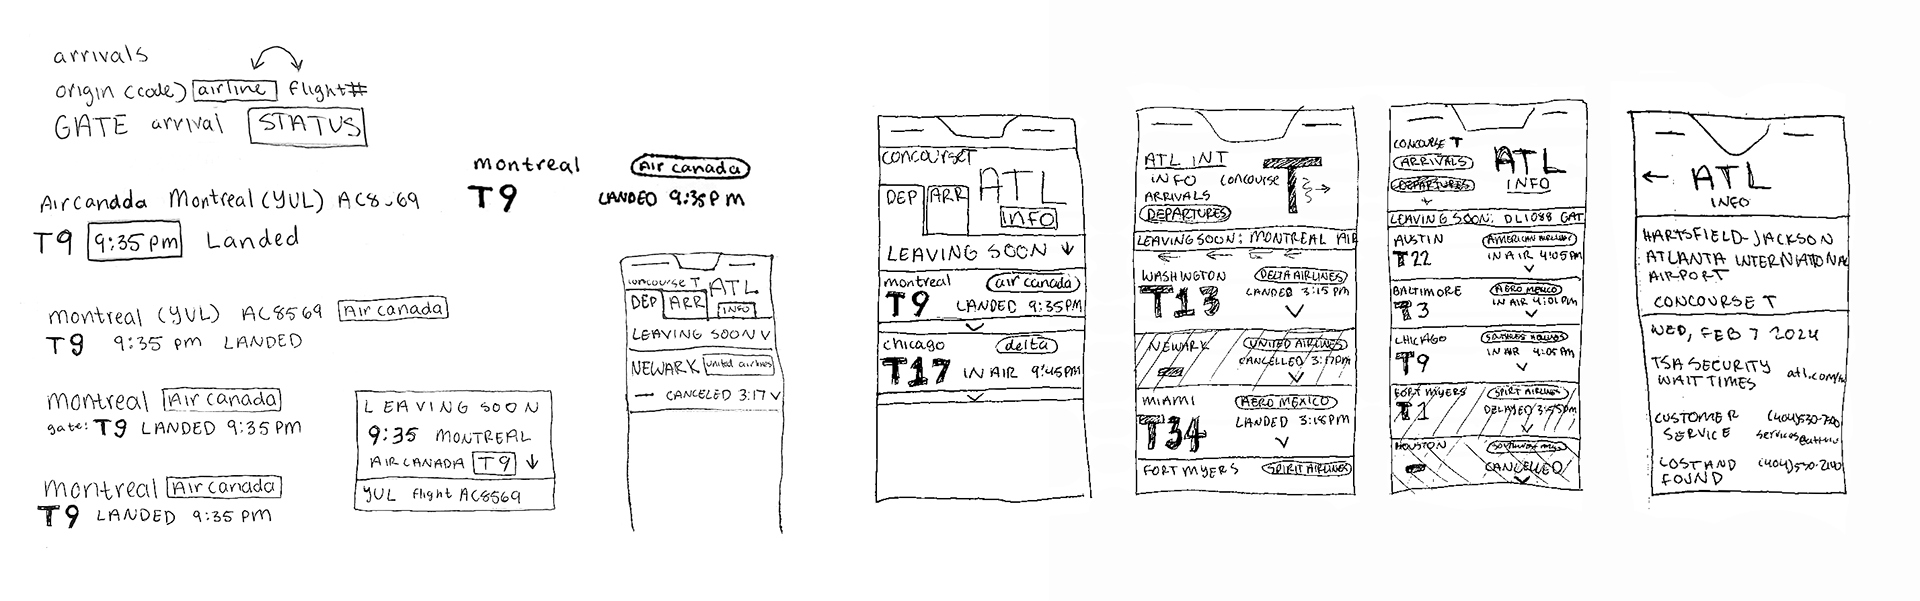 arrivals
origin (code) airline flight#
GATE arrival STATUS
Aircanada Montreal (YUL) AC8569
T9 9:35pm Landed
montreal (YUL) AC8569 Air canada
T9 9:35 pm LANDED
montreal Air canada
gate: T9 LANDED 9:35 PM
montreal Air canada
T9 LANDED 9:35 PM
montreal Air canada
T9 LANDED 9:35PM
LEAVING SOON
9:35 MONTREAL
AIR CANADA T9
YUL flight AC8569
concourse T ATL
DEP ARR INFO
LEAVING SOON
NEWARK united airlines
— CANCELED 3:17
CONCOURSE T
DEP ARR ATL
INFO
LEAVING SOON
montreal air canada
T9 LANDED 9:35PM
chicago delta
T17 IN AIR 9:45PM
ATL INT
INFO CONCOURSE T
ARRIVALS
DEPARTURES
LEAVING SOON: MONTREAL AIR
WASHINGTON DELTA AIRLINES
T13 LANDED 3:15 PM
NEWARK UNITED AIRLINES
CANCELLED 3:17PM
MIAMI AERO MEXICO
T34 LANDED 3:18PM
FORT MYERS SPIRIT AIRLINES
CONCOURSE T
ARRIVALS ATL
DEPARTURES INFO
LEAVING SOON: DL1088 GAT
AUSTIN AMERICAN AIRLINES
T22 IN AIR 4:05PM
BALTIMORE AERO MEXICO
T3 IN AIR 4:01PM
CHICAGO
T9 IN AIR 4:05PM
FORT MYERS SPIRIT AIRLINES
T1 DELAYED 3:55PM
HOUSTON
CANCELLED
← ATL
INFO
HARTSFIELD-JACKSON
ATLANTA INTERNATIONAL
AIRPORT
CONCOURSE T
WED, FEB 7 2024
TSA SECURITY
WAIT TIMES atl.com/
CUSTOMER
SERVICE
LOST AND (404)530-2100
FOUND